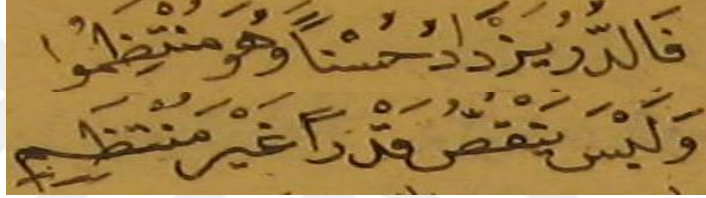 فَالدُّرُ يَزْدَادُ حُسْناً وَهُوَ مُنْتَظِمُوا
وَلَيْسَ يَنْقُصُ قَدْراً غَيْرَ مُنْتَظِمِ